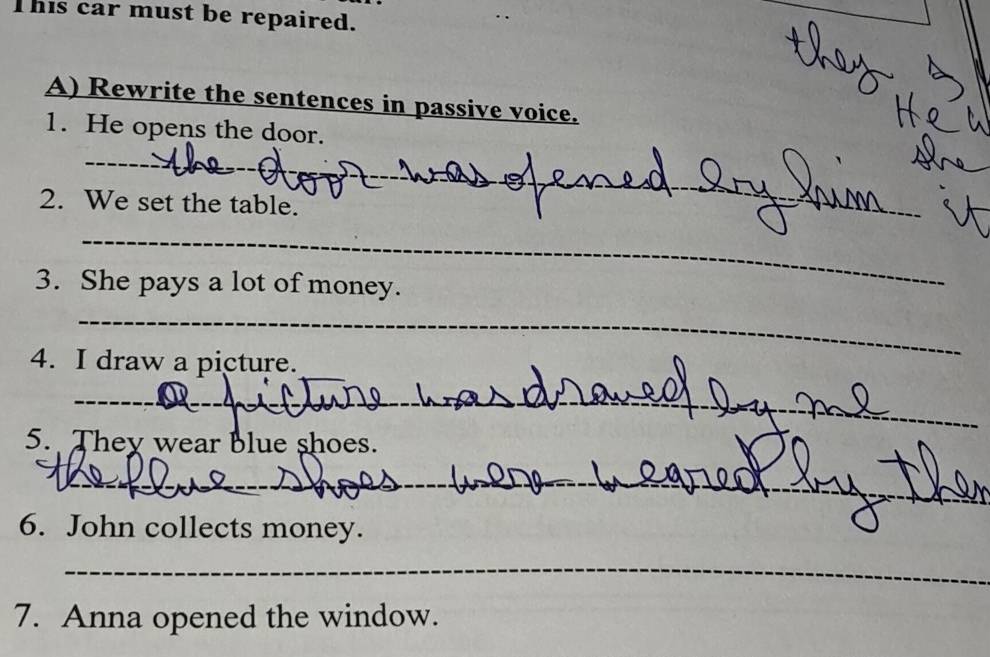 This car must be repaired.
they
A) Rewrite the sentences in passive voice.
He
1. He opens the door.
she
the door was opened by him
it
2. We set the table.
3. She pays a lot of money.
4. I draw a picture.
a picture was drawed by me
5. They wear blue shoes.
the blue shoes were weared by them
6. John collects money.
7. Anna opened the window.